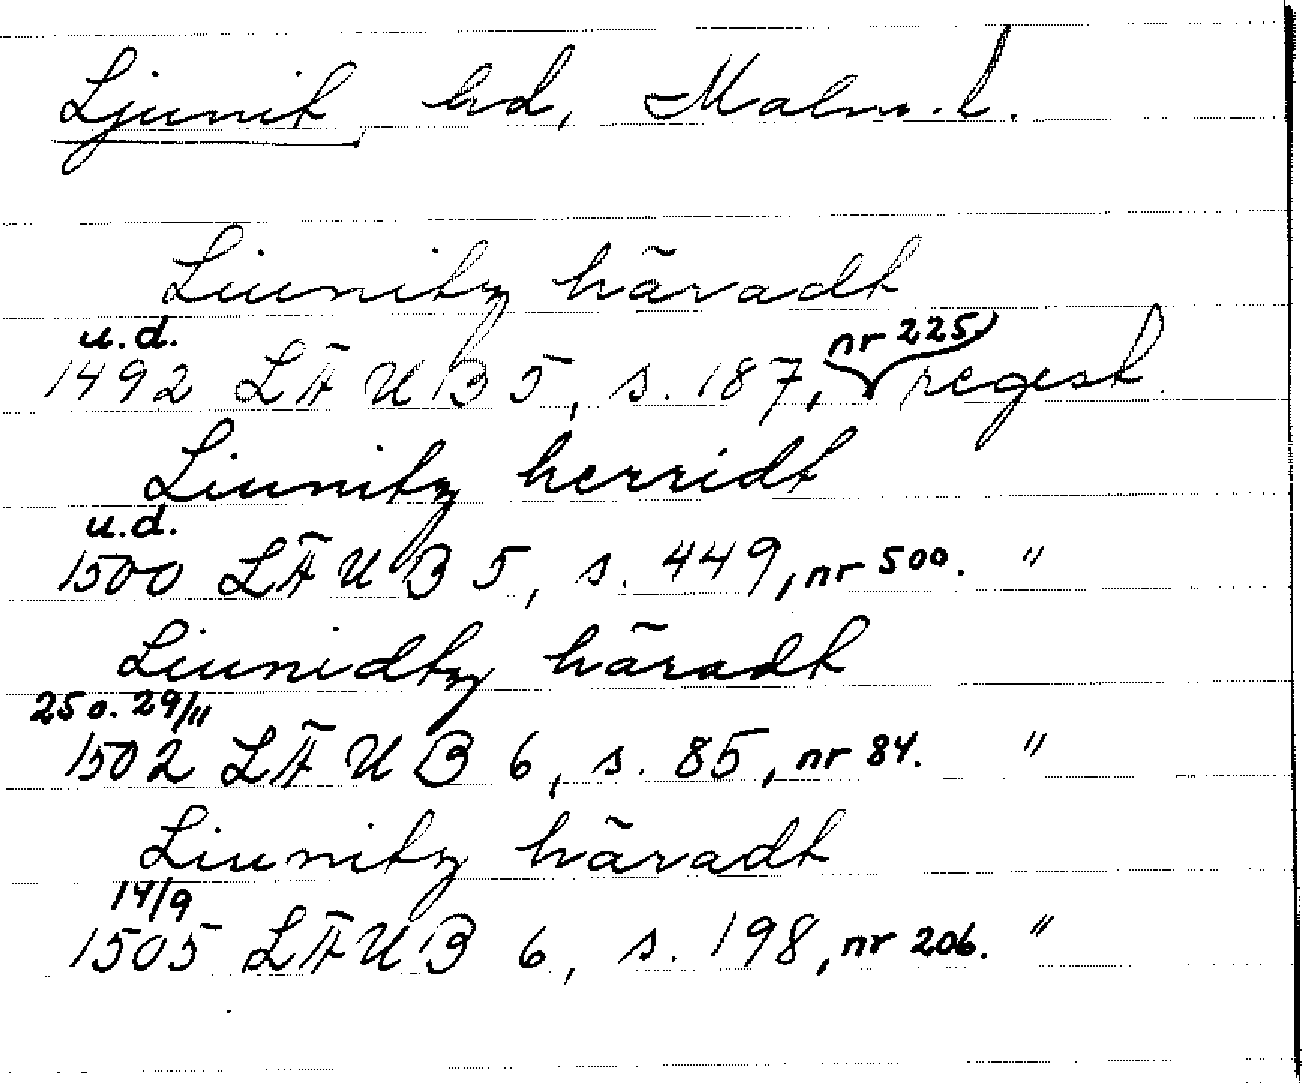 Ljunit hd, Malm. l.
Liunitz häradt
u.d.
1492 LÄUB 5, s. 187, nr 225 regest.
Liunitz herridt
u.d.
1500 LÄUB 5, s. 449, nr 500. "
Liunidtz häradt
25 o. 29/11
1502 LÄUB 6, s. 85, nr 84. "
Liunitz häradt
14/9
1505 LÄUB 6, s. 198, nr 206. "